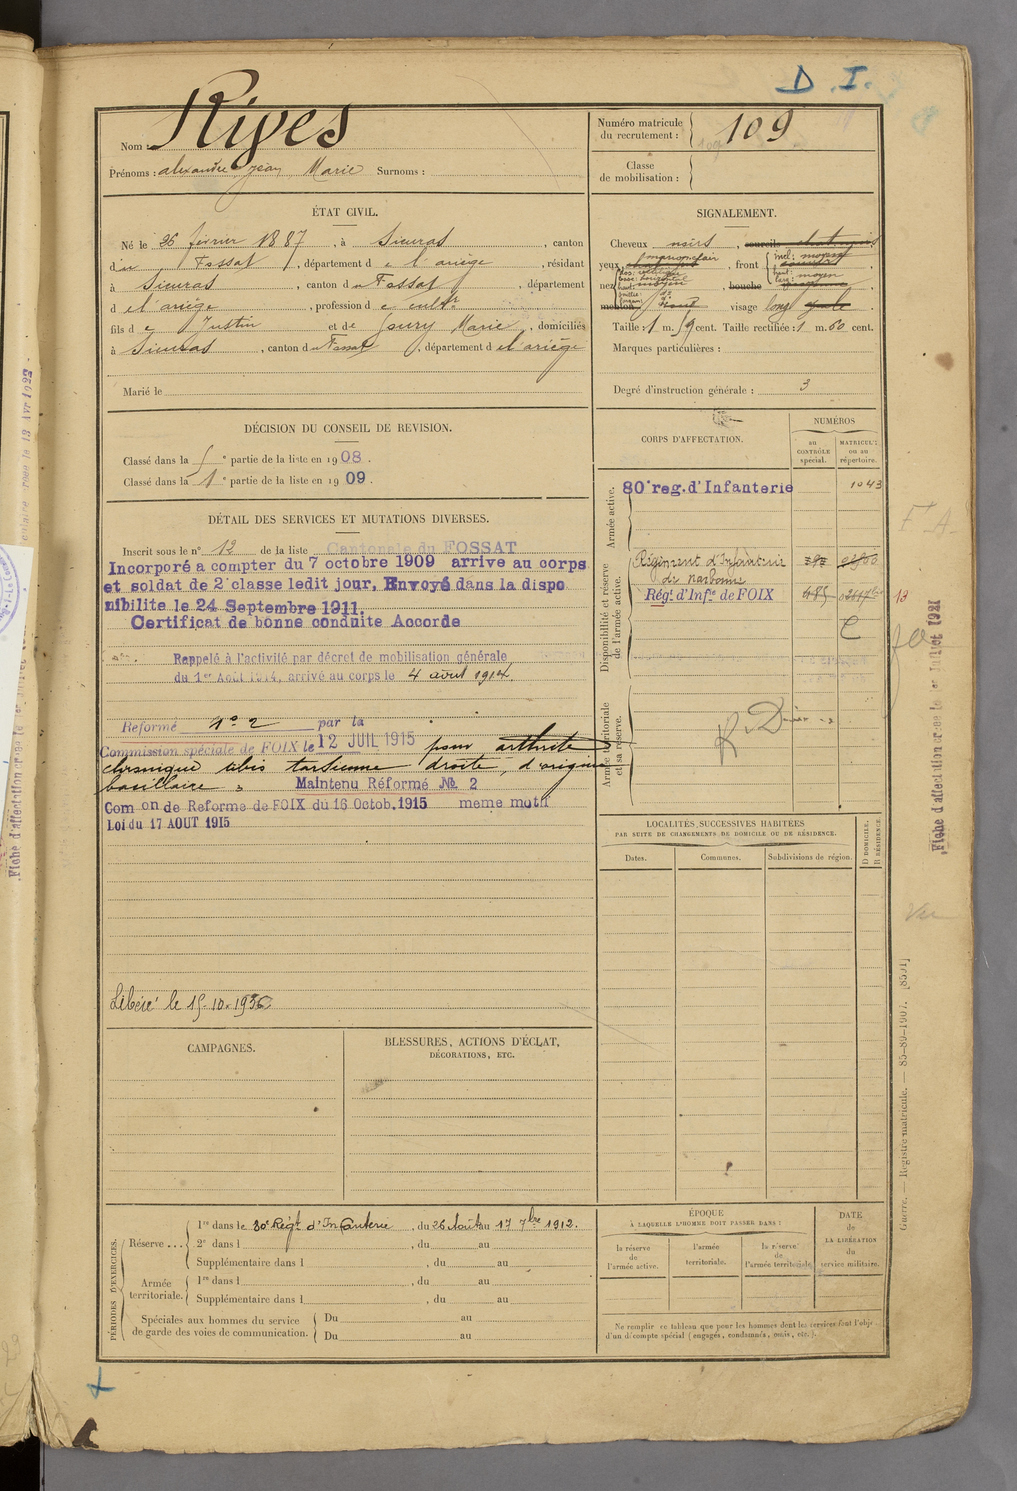 D. I.
Nom : Rives
Prénoms : alexandre jean Marie Surnoms :
Numéro matricule
du recrutement : 109
Classe
de mobilisation :
ÉTAT CIVIL.
Né le 26 février 1887, à Sieuras, canton
du Fossat, département de l'ariège, résidant
à Sieuras, canton du Fossat, département
de l'ariège, profession de cultr
fils de Justin et de Marie, domiciliés
à Sieuras, canton du Fossat, département de l'ariège
Marié le
SIGNALEMENT.
Cheveux noirs, sourcils chatains
yeux marron clair, front
nez moyen, bouche moyenne
menton rond visage long ovale
Taille : 1 m. 59 cent. Taille rectifiée : 1 m. 60 cent.
Marques particulières :
Degré d'instruction générale : 3
DÉCISION DU CONSEIL DE REVISION.
Classé dans la 5e partie de la liste en 1908.
Classé dans la 1e partie de la liste en 1909.
CORPS D'AFFECTATION.
NUMÉROS
AU CONTRÔLE spécial.
MATRICULE ou au répertoire.
Armée active.
80e reg. d'Infanterie 1043
Disponibilité et réserve
de l'armée active.
Régiment d'Infanterie
de Narbonne
Régt d'Infie de FOIX
Armée territoriale
et sa réserve.
R.D
DÉTAIL DES SERVICES ET MUTATIONS DIVERSES.
Inscrit sous le n° 12 de la liste Cantonale du FOSSAT
Incorporé a compter du 7 octobre 1909 arrive au corps
et soldat de 2e classe ledit jour, Envoyé dans la dispo
nibilite le 24 Septembre 1911.
Certificat de bonne conduite Accorde
Rappelé à l'activité par décret de mobilisation générale
du 1er Août 1914, arrivé au corps le 4 août 1914.
Reformé n° 2 par la
Commission spéciale de FOIX le 12 JUIL 1915 pour arthrite
chronique tibio tarsienne droite, d'origine
bacillaire. Maintenu Réformé No 2
Com on de Reforme de FOIX du 16 Octob. 1915 meme motif
Loi du 17 AOUT 1915
Libéré le 15-10-1936
LOCALITÉS SUCCESSIVES HABITÉES
PAR SUITE DE CHANGEMENTS DE DOMICILE OU DE RÉSIDENCE.
Dates.
Communes.
Subdivisions de région.
D DOMICILE.
R RÉSIDENCE.
CAMPAGNES.
BLESSURES, ACTIONS D'ÉCLAT,
DÉCORATIONS, ETC.
PÉRIODES D'EXERCICES.
Réserve ...
1re dans le 80e Régt d'Infanterie, du 26 Août au 17 7bre 1912.
2e dans l , du au
Supplémentaire dans l , du au
Armée
territoriale.
1re dans l , du au
Supplémentaire dans l , du au
Spéciales aux hommes du service
de garde des voies de communication.
Du au
Du au
ÉPOQUE
À LAQUELLE L'HOMME DOIT PASSER DANS :
la réserve
de
l'armée active.
l'armée
territoriale.
la réserve
de
l'armée territoriale.
DATE
de
LA LIBÉRATION
du
service militaire.
Ne remplir ce tableau que pour les hommes dont les services font l'objet
d'un décompte spécial (engagés, condamnés, omis, etc.).
Fiche d'affectation créée le 1er Juillet 1921
Guerre. — Registre matricule. — 85-89-1907. [8591]